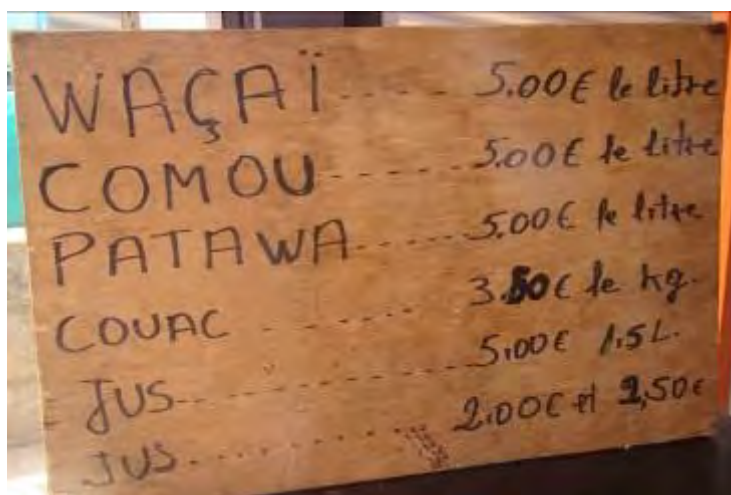 WAÇAÏ ..... 5.00€ le litre
COMOU ..... 5.00€ le litre
PATAWA ..... 5.00€ le litre
COUAC ..... 3.50€ le kg.
JUS ..... 5,00€ 1.5L.
JUS ..... 2.00€ et 2,50€